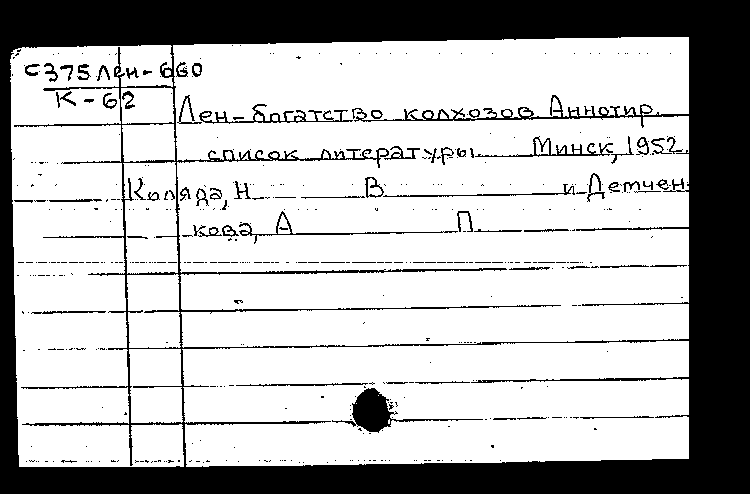 С375Лен-660
К-62
Лен-богатство колхозов Аннотир.
список литературы. Минск, 1952.
Коляда, Н В и Детчен-
кова, А П.